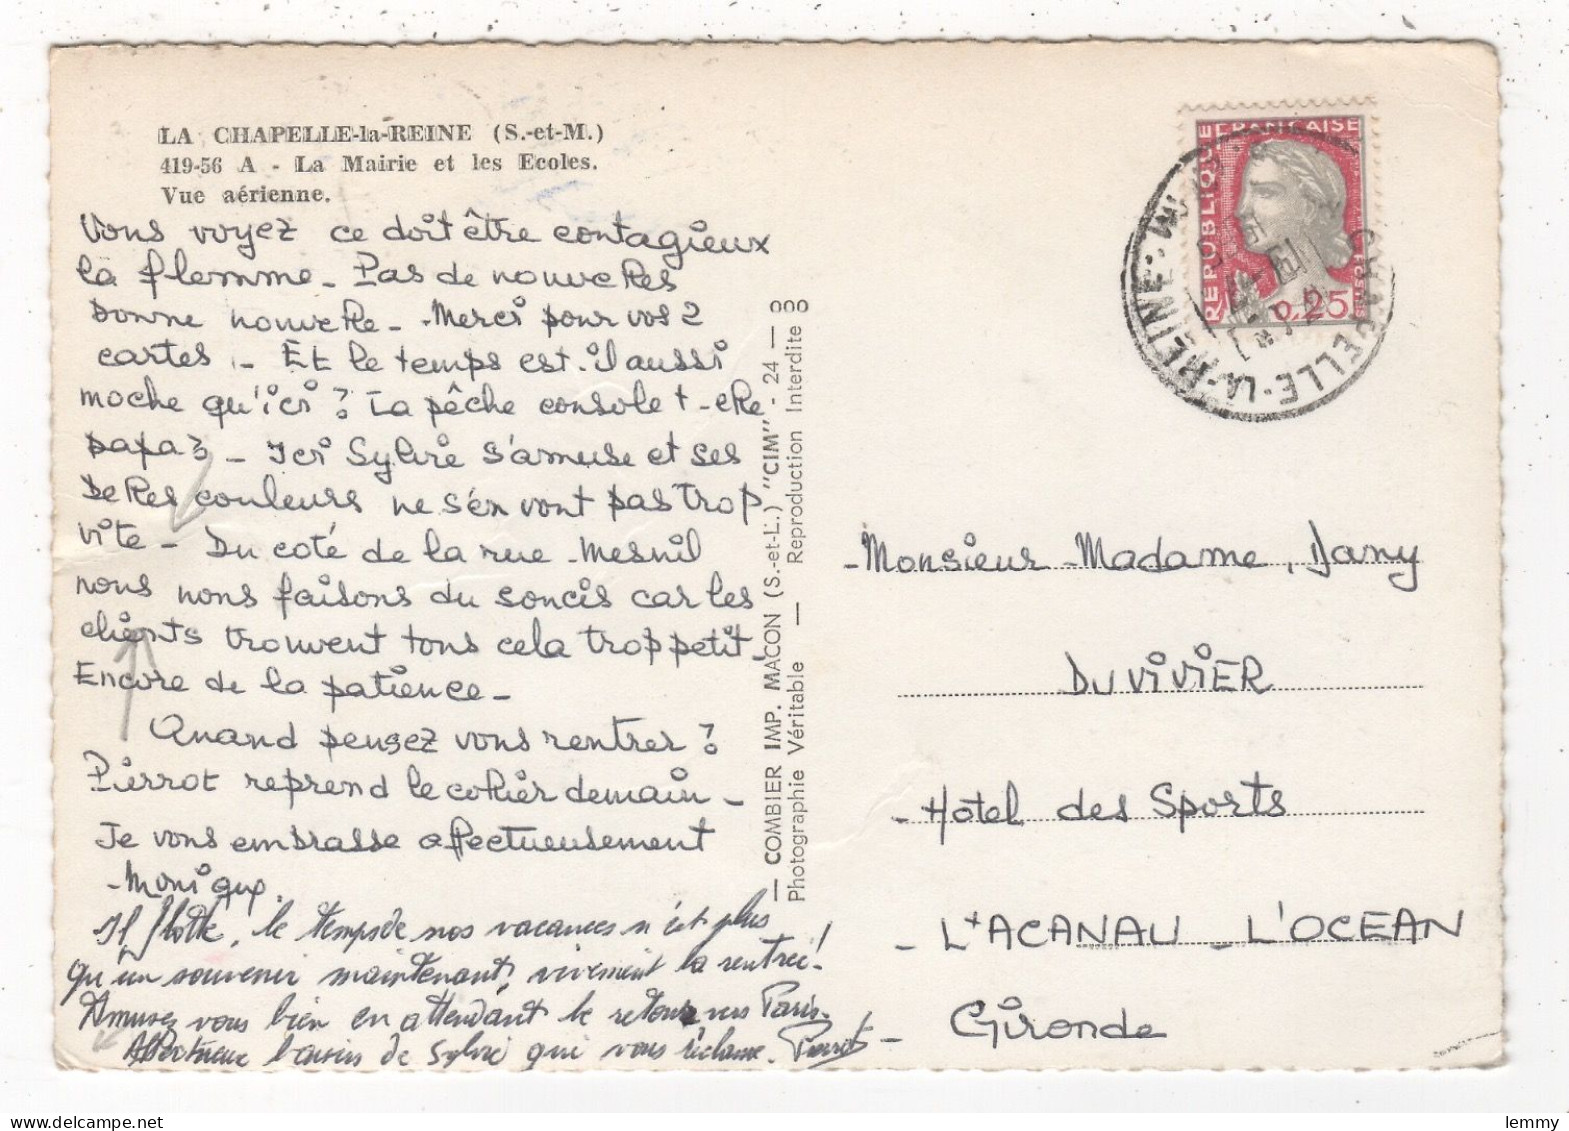 LA CHAPELLE-la-REINE (S.-et-M.)
419-56 A - La Mairie et les Ecoles.
Vue aérienne.
Vous voyez ce doit être contagieux
la flemme - Pas de nouvelles
bonne nouvelle - Merci pour vos 2
cartes - Et le temps est-il aussi
moche qu'ici ? La pêche console t-elle
papa ? - Ici Sylvie s'amuse et ses
belles couleurs ne s'en vont pas trop
vite - Du coté de la rue Mesnil
nous nous faisons du soucis car les
clients trouvent tous cela trop petit -
Encore de la patience -
Quand pensez vous rentrer ?
Pierrot reprend le collier demain -
Je vous embrasse affectueusement
- Monique.
Il flotte, le temps de nos vacances n'est plus
qu'un souvenir maintenant, vivement la rentrée !
Amusez vous bien en attendant le retour vers Paris.
Affectueux baisers de Sylvie qui vous réclame. Pierrot
— COMBIER IMP. MACON (S.-et-L.) "CIM" - 24 — 000
Photographie Véritable — Reproduction Interdite
REPUBLIQUE FRANÇAISE
0,25
CHAPELLE-LA-REINE
- Monsieur - Madame, Dany
DUVIVIER
- Hôtel des Sports
- L'ACANAU - L'OCEAN
- Gironde
lemmy